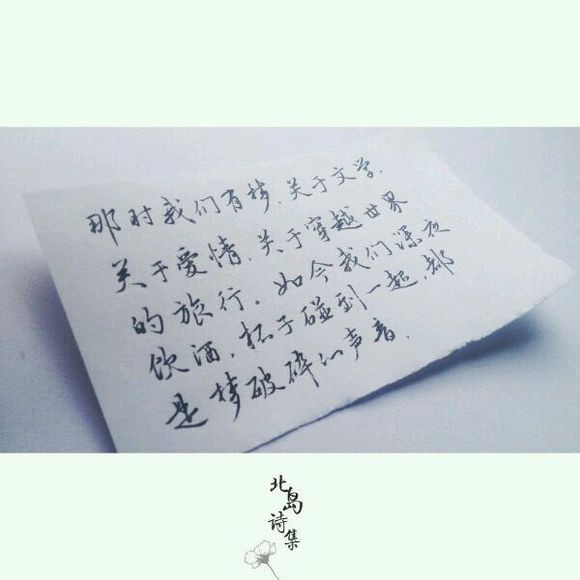 那时我们有梦,关于文学,
关于爱情,关于穿越世界
的旅行。如今我们深夜
饮酒,杯子碰到一起,都
是梦破碎的声音.
北岛
诗集